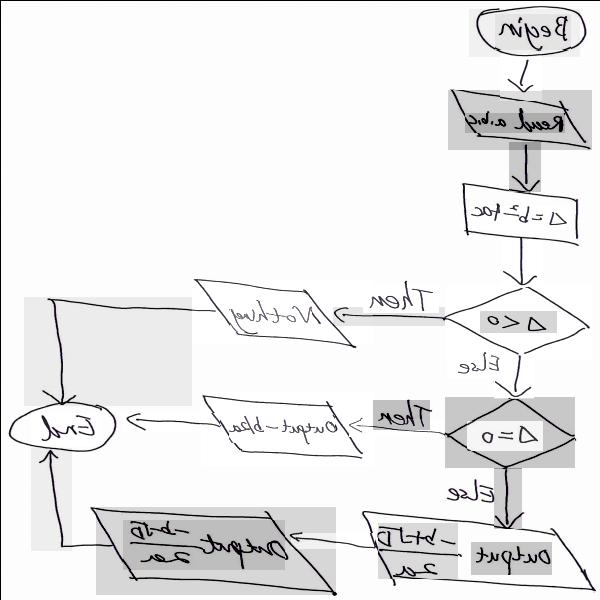 Begin
Read a,b,c
Δ=b²-4ac
Δ<0
Then
Nothing
Else
Δ=0
Then
Output -b/2a
End
Else
Output
-b+√D
2a
Output
-b-√D
2a